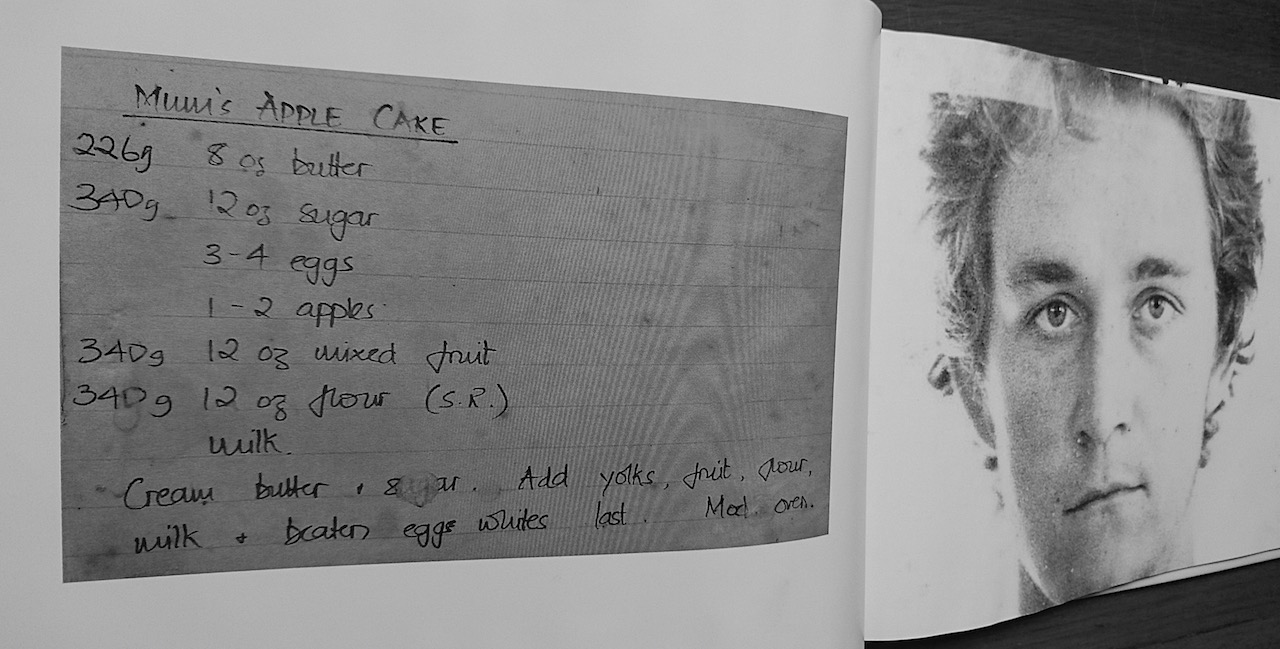 Mum's APPLE CAKE
226g 8 oz butter
340g 12 oz sugar
3-4 eggs
1-2 apples
340g 12 oz mixed fruit
340g 12 oz flour (S.R.)
milk.
Cream butter + sugar. Add yolks, fruit, flour,
milk + beaten eggs whites last. Mod. oven.